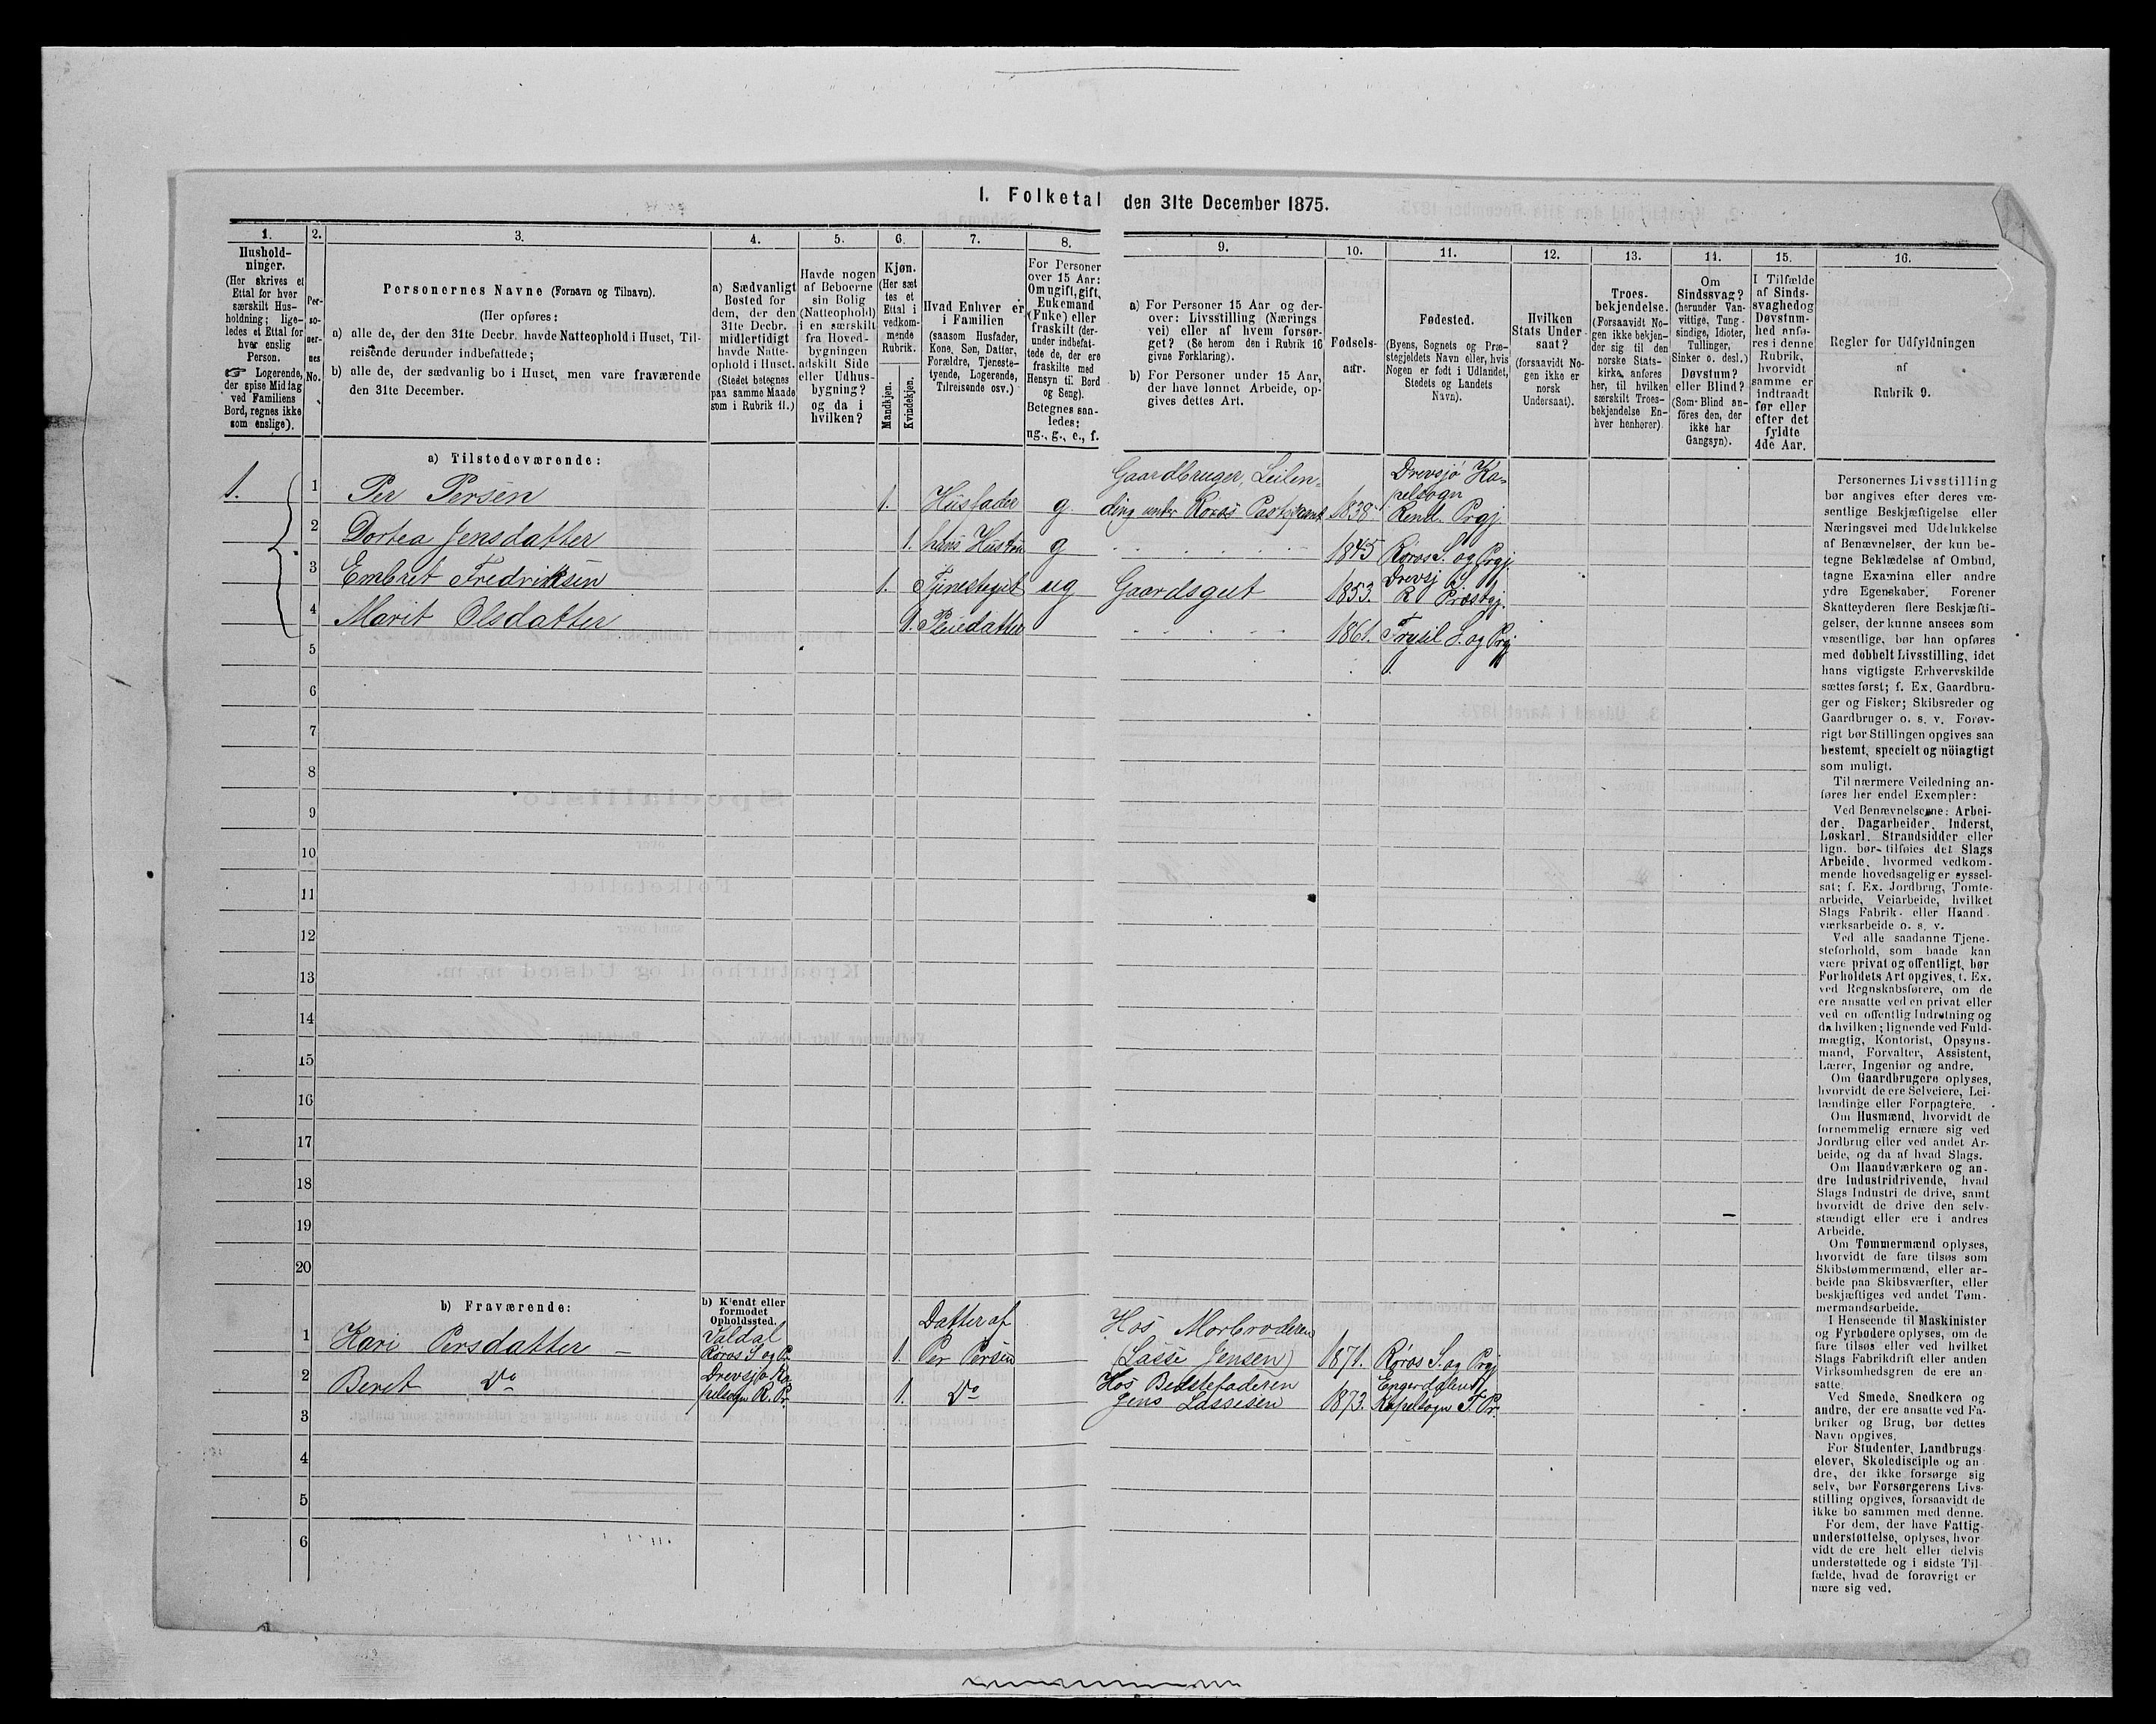 I. Folketal den 31te December 1875.
1.
Hushold-
ninger.
(Her skrives et
Ettal for hver
særskilt Hus-
holdning; lige-
ledes et Ettal for
hver enslig
Person.
☞ Logerende,
der spise Middag
ved Familiens
Bord, regnes ikke
som enslige).
2.
Per-
so-
ner-
nes
No.
3.
Personernes Navne (Fornavn og Tilnavn).
(Her opføres:
a) alle de, der den 31te Decbr. havde Natteophold i Huset, Til-
reisende derunder indbefattede;
b) alle de, der sædvanlig bo i Huset, men vare fraværende
den 31te December.
4.
a) Sædvanligt
Bosted for
dem, der den
31te Decbr.
midlertidigt
havde Natte-
ophold i Huset.
(Stedet betegnes
paa samme Maade
som i Rubrik 11.)
5.
Havde nogen
af Beboerne
sin Bolig
(Natteophold)
i en særskilt
fra Hoved-
bygningen
adskilt Side
eller Udhus-
bygning?
og da i
hvilken?
6.
Kjøn.
(Her sæt
tes et
Ettal i
vedkom-
mende
Rubrik.
Mandkjøn.
Kvindekjøn.
7.
Hvad Enhver er
i Familien
(saasom Husfader,
Kone, Søn, Datter,
Forældre, Tjeneste-
tyende, Logerende,
Tilreisende osv.)
8.
For Personer
over 15 Aar:
Om ugift, gift,
Enkemand
(Enke) eller
fraskilt (der-
under indbefat-
tede de, der ere
fraskilte med
Hensyn til Bord
og Seng).
Betegnes saa-
ledes:
ug., g., e., f.
9.
a) For Personer 15 Aar og der-
over: Livsstilling (Nærings
vei) eller af hvem forsør-
get? (Se herom den i Rubrik 16
givne Forklaring).
b) For Personer under 15 Aar,
der have lønnet Arbeide, op-
gives dettes Art.
10.
Fødsels-
aar.
11.
Fødested.
(Byens, Sognets og Præ-
stegjeldets Navn eller, hvis
Nogen er født i Udlandet,
Stedets og Landets
Navn).
12.
Hvilken
Stats Under-
saat?
(forsaavidt No-
gen ikke er
norsk
Undersaat).
13.
Troes-
bekjendelse.
(Forsaavidt No-
gen ikke bekjen-
der sig til den
norske Stats-
kirke, anføres
her, til hvilken
særskilt Troes-
bekjendelse En-
hver henhører)
14.
Om
Sindssvag?
(herunder Van-
vittige, Tung-
sindige, Idioter,
Tullinger,
Sinker o. desl.)
Døvstum?
eller Blind?
(Som Blind an-
føres den, der
ikke har
Gangsyn).
15.
I Tilfælde
af Sinds-
svaghed og
Døvstum-
hed anfø-
res i denne
Rubrik,
hvorvidt
samme er
indtraadt
før eller
efter det
fyldte
4de Aar.
16.
Regler for Udfyldningen
af
Rubrik 9.
a) Tilstedeværende:
1. 1 Per Persen 1. Husfader g. Gaardbruger, Leilen-
ding under Røros 1838 Drevsjø Ka-
pelsogn
Rend. Prgj
2 Dortea Jensdatter 1. hans Hustru g 1845 Røros S. og Prgj
3 Embret Fredriksen 1. Tjenestegut ug Gaardsgut 1853. Drevsj S.
R Præstgj.
4 Marit Olsdatter 1. Pleiedatter 1861. Trysil S. og Prgj
5
6
7
8
9
10
11
12
13
14
15
16
17
18
19
20
b) Fraværende:
b) Kjendt eller
formodet
Opholdssted.
1 Kari Persdatter Valdal
Røros S. og Pr. 1. Datter af
Per Persen Hos Morbroderen
(Lasse Jensen) 1871. Røros S. og Prgj
2 Beret Do Drevsjø Ka-
pelsogn R. Pr. 1. Do Hos Bedstefaderen
Jens Lassesen 1873. Engerdalens
Kapelsogn T. Pr.
3
4
5
6
Personernes Livsstilling
bør angives efter deres væ-
sentlige Beskjæftigelse eller
Næringsvei med Udelukkelse
af Benævnelser, der kun be-
tegne Beklædelse af Ombud,
tagne Examina eller andre
ydre Egenskaber. Forener
Skatteyderen flere Beskjæfti-
gelser, der kunne ansees som
væsentlige, bør han opføres
med dobbelt Livsstilling, idet
hans vigtigste Erhvervskilde
sættes først; f. Ex. Gaardbru-
ger og Fisker; Skibsreder og
Gaardbruger o. s. v. Forøv-
rigt bør Stillingen opgives saa
bestemt, specielt og nöiagtigt
som muligt.
Til nærmere Veiledning an-
føres her endel Exempler:
Ved Benævnelserne: Arbei-
der, Dagarbeider, Inderst,
Løskarl, Strandsidder eller
lign. bør tilføies det Slags
Arbeide, hvormed vedkom-
mende hovedsagelig er syssel-
sat; f. Ex. Jordbrug, Tomte-
arbeide, Veiarbeide, hvilket
Slags Fabrik- eller Haand-
værksarbeide o. s. v.
Ved alle saadanne Tjene-
steforhold, som baade kan
være privat og offentligt, bør
Forholdets Art opgives, t. Ex.
ved Regnskabsførere, om de
ere ansatte ved en privat eller
ved en offentlig Indretning og
da hvilken; lignende ved Fuld-
mægtig, Kontorist, Opsyns-
mand, Forvalter, Assistent,
Lærer, Ingeniør og andre.
Om Gaardbrugere oplyses,
hvorvidt de ere Selveiere, Lei-
lændinge eller Forpagtere.
Om Husmænd, hvorvidt de
fornemmelig ernære sig ved
Jordbrug eller ved andet Ar-
beide, og da af hvad Slags.
Om Haandværkere og an-
dre Industridrivende, hvad
Slags Industri de drive, samt
hvorvidt de drive den selv-
stændigt eller ere i andres
Arbeide.
Om Tømmermænd oplyses,
hvorvidt de fare tilsøs som
Skibstømmermænd, eller ar-
beide paa Skibsværfter, eller
beskjæftiges ved andet Tøm-
mermandsarbeide.
I Henseende til Maskinister
og Fyrbødere oplyses, om de
fare tilsøs eller ved hvilket
Slags Fabrikdrift eller anden
Virksomhed de ere an-
satte.
Ved Smede, Snedkere og
andre, der ere ansatte ved Fa-
briker og Brug, bør dettes
Navn opgives.
For Studenter, Landbrugs-
elever, Skoledisciple og an-
dre, der ikke forsørge sig
selv, bør Forsørgerens Livs-
stilling opgives, forsaavidt de
ikke bo sammen med denne.
For dem, der have Fattig-
understøttelse, oplyses, hvor-
vidt de ere helt eller delvis
understøttede og i sidste Til-
fælde, hvad de forøvrigt er-
nære sig ved.